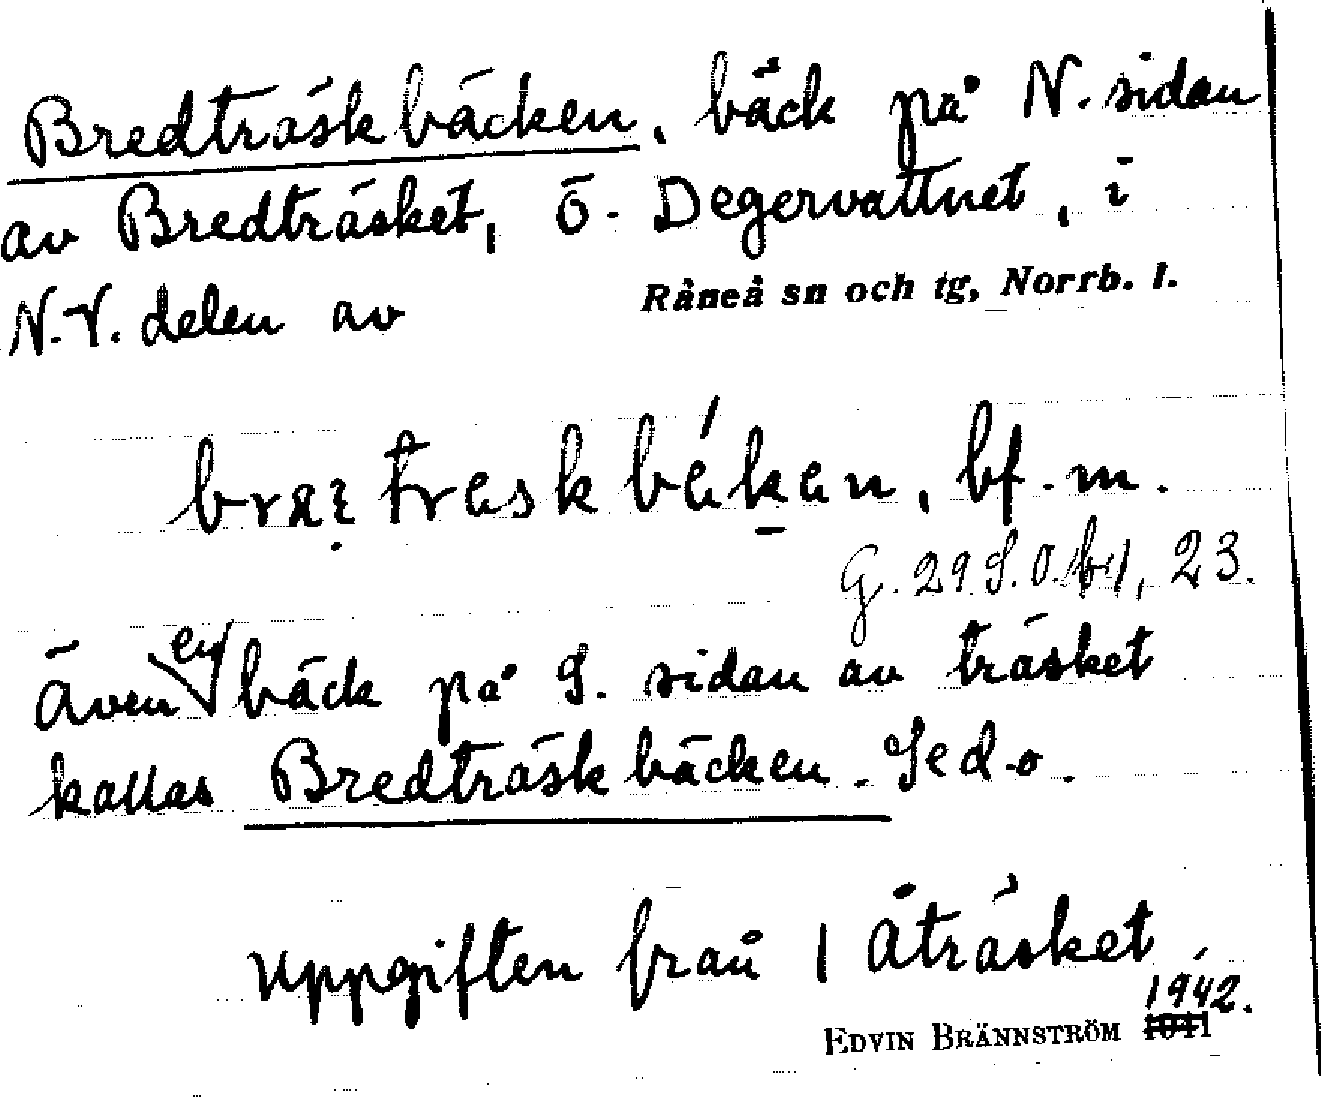 Bredträskbäcken, bäck på N. sidan
av Bredträsket, Ö. Degervattnet, i
N.V. delen av Råneå sn och tg, Norrb. l.
bf. m.
G. 29 S.O. 23.
Även en bäck på S. sidan av träsket
kallas Bredträskbäcken. Se d-o.
Uppgiften från 1 Åträsket
1942.
EDVIN BRÄNNSTRÖM 1941